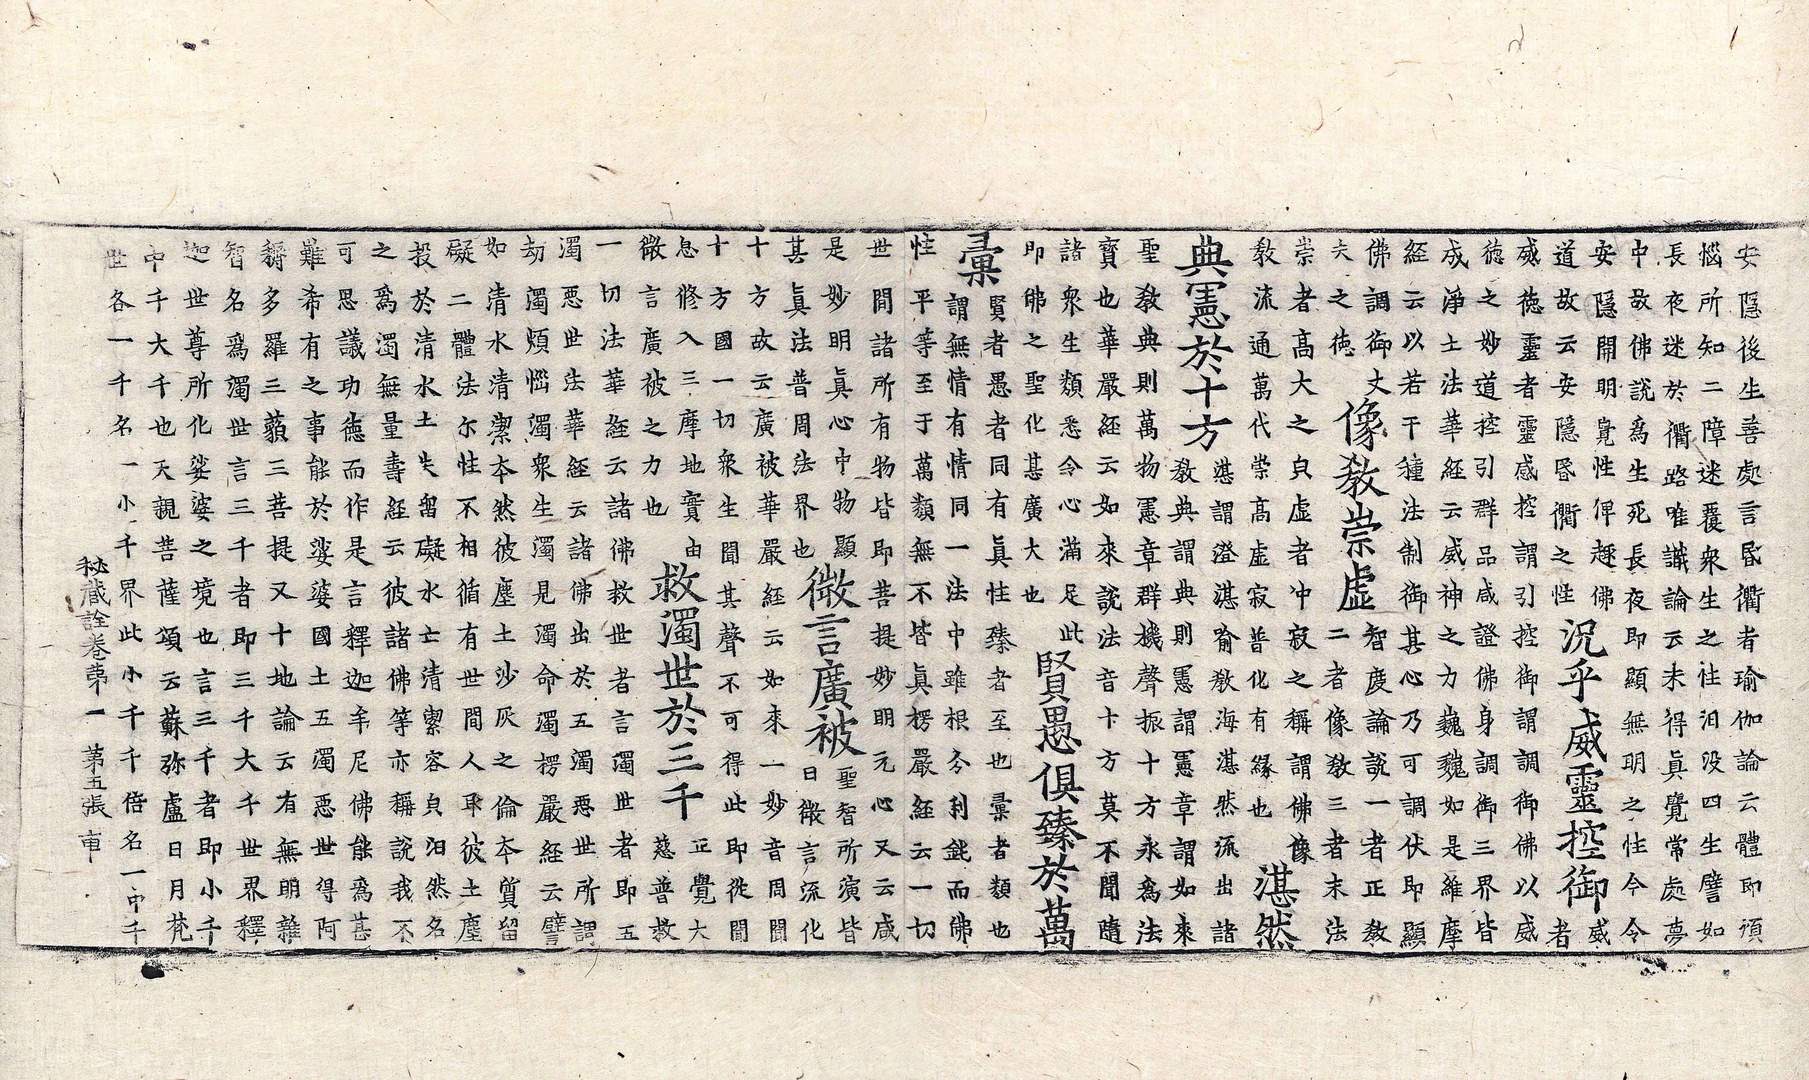 安隱後生善處言昏衢者瑜伽論云體即煩
惱所知二障迷覆衆生之性汩没四生譬如
長夜迷於衢路唯識論云未得真覺常處夢
中故佛說為生死長夜即顯無明之性今令
安隱開明覺性俾趣佛
道故云安隱昏衢之性
況乎威靈控御
威
者
威德靈者靈感控謂引控御謂調御佛以威
德之妙道控引群品咸證佛身調御三界皆
成淨土法華經云威神之力巍巍如是維摩
經云以若干種法制御其心乃可調伏即顯
佛調御丈
夫之德
像敎崇虛
智度論說一者正敎
二者像敎三者末法
崇者高大之皃虛者冲寂之稱謂佛像
敎流通萬代崇高虛寂普化有緣也
湛然
典憲於十方
湛謂澄湛湛喻敎海湛然流出諸
敎典謂典則憲謂憲章謂如來
聖敎典則萬物憲章群機聲振十方永為法
寶也華嚴經云如來說法音十方莫不聞隨
諸衆生類悉令心滿足此
即佛之聖化甚廣大也
賢愚俱臻於萬
彙
賢者愚者同有真性臻者至也彙者類也
謂無情有情同一法中雖根分利鈍而佛
性平等至于萬類無不皆真楞嚴經云一切
世間諸所有物皆即菩提妙明元心又云咸
是妙明眞心中物顯
其眞法普周法界也
微言廣被
聖智所演皆
曰微言流化
十方故云廣被華嚴經云如來一妙音周聞
十方國一切衆生聞其聲不可得此即從聞
息修入三摩地實由
微言廣被之力也
救濁世於三千
正覺大
慈普救
一切法華經云諸佛救世者言濁世者即五
濁惡世法華經云諸佛出於五濁惡世所謂
劫濁煩惱濁衆生濁見濁命濁楞嚴經云譬
如清水清潔本然彼塵土沙灰之倫本質留
礙二體法尔性不相循有世間人取彼土塵
投於清水土失留礙水亡清潔容皃汩然名
之爲濁無量壽經云彼諸佛等亦稱說我不
可思議功德而作是言釋迦牟尼佛能爲甚
難希有之事能於娑婆國土五濁惡世得阿
耨多羅三藐三菩提又十地論云有無明雜
智名爲濁世言三千者即三千大千世界釋
迦世尊所化娑婆之境也言三千者即小千
中千大千也天親菩薩頌云蘇弥盧日月梵
世各一千名一小千界此小千千倍名一中千
秘藏詮卷第一 第五張